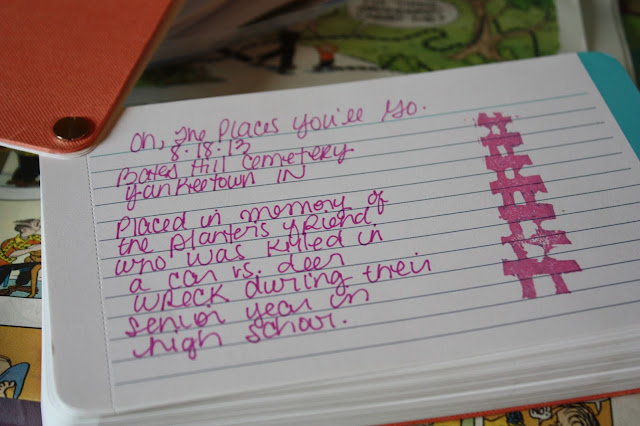 Oh, The Places You'll Go.
8.18.13
Bates Hill Cemetery
Yankeetown IN
Placed in memory of
the planter's friend
who was killed in
a car vs. deer
wreck during their
senior year in
high school.